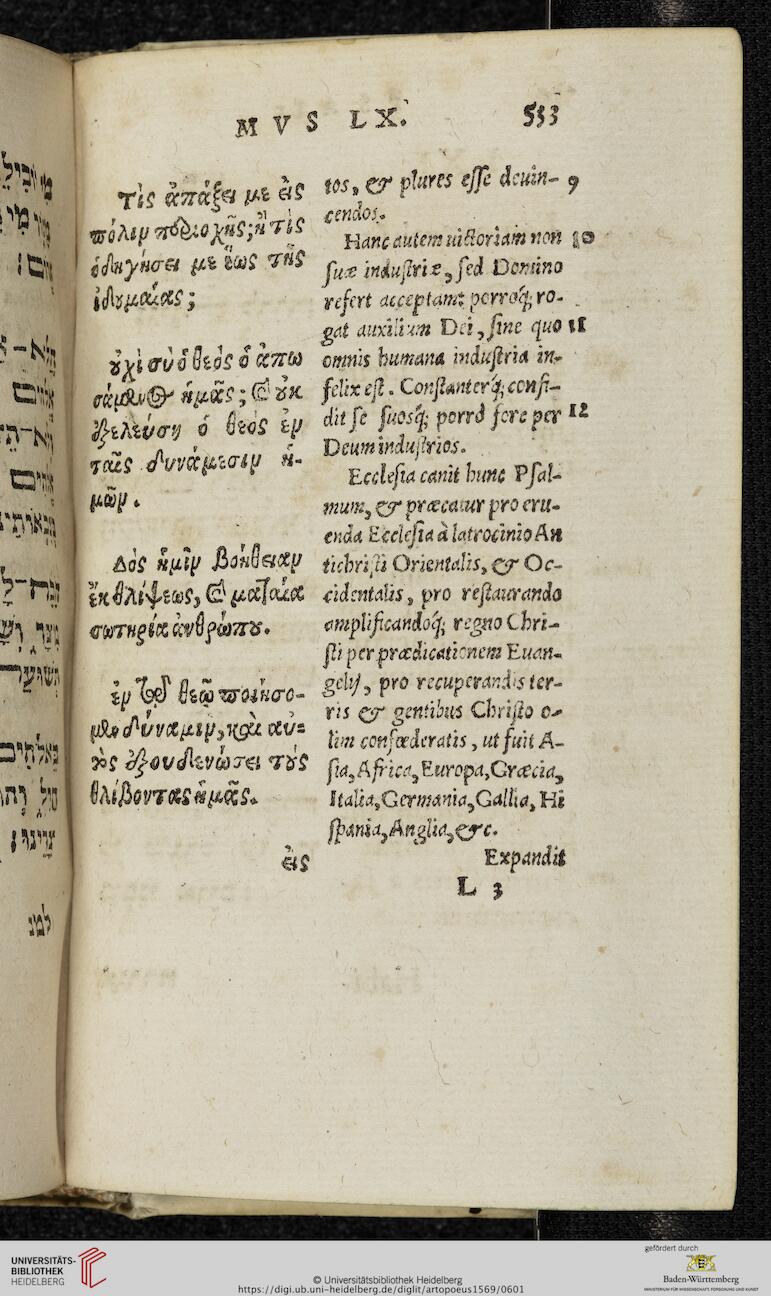 MVS LX.
533
τίς ἀπάξει με εἰς
πόλιν περιοχῆς; ἢ τίς
ὁδηγήσει με ἕως τῆς
ἰδυμαίας;
οὐχὶ σὺ ὁ θεὸς ὁ ἀπω
σάμενος ἡμᾶς; καὶ οὐκ
ἐξελεύσῃ ὁ θεὸς ἐν
ταῖς δυνάμεσιν ἡ-
μῶν.
Δὸς ἡμῖν βοήθειαν
ἐκ θλίψεως, καὶ ματαία
σωτηρία ἀνθρώπου.
ἐν τῷ θεῷ ποιήσο-
μεν δύναμιν, καὶ αὐ-
τὸς ἐξουδενώσει τοὺς
θλίβοντας ἡμᾶς.
εἰς
tos, & plures esse deuin- 9
cendos.
Hanc autem uictoriam non 10
suæ industriæ, sed Domino
refert acceptam: porroq́; ro-
gat auxilium Dei, sine quo 11
omnis humana industria in-
felix est. Constanterq́; confi-
dit se suosq́; porrò fore per 12
Deum industrios.
Ecclesia canit hunc Psal-
mum, & præcatur pro eru-
enda Ecclesia à latrocinio An
tichristi Orientalis, & Oc-
cidentalis, pro restaurando
amplificandoq́; regno Chri-
sti per prædicationem Euan-
gelij, pro recuperandis ter-
ris & gentibus Christo o-
lim confœderatis, ut fuit A-
sia, Africa, Europa, Græcia,
Italia, Germania, Gallia, Hi
spania, Anglia, &c.
Expandit
L 3
UNIVERSITÄTS-
BIBLIOTHEK
HEIDELBERG
© Universitätsbibliothek Heidelberg
https://digi.ub.uni-heidelberg.de/diglit/artopoeus1569/0601
gefördert durch
Baden-Württemberg
MINISTERIUM FÜR WISSENSCHAFT, FORSCHUNG UND KUNST